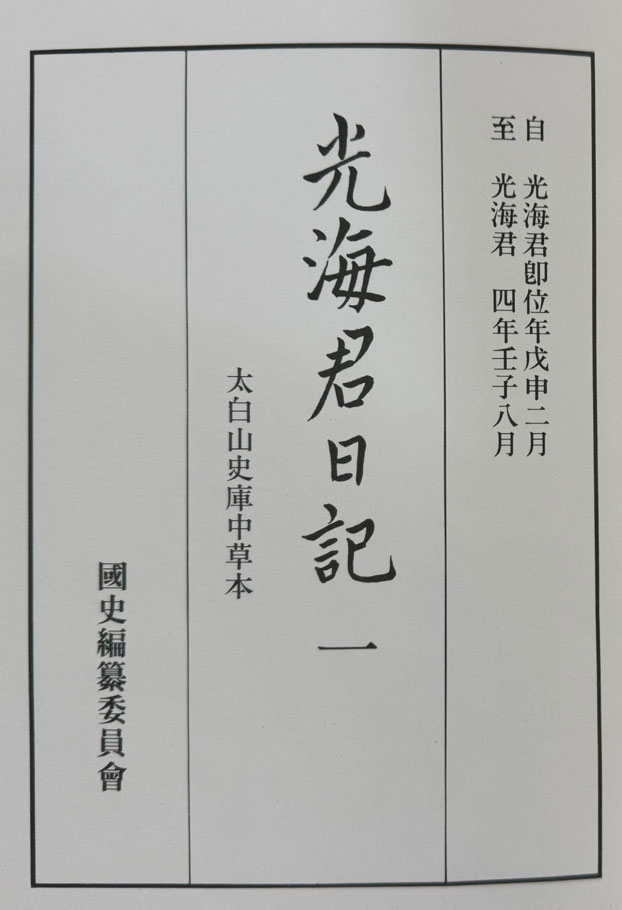 自　光海君卽位年戊申二月
至　光海君　四年壬子八月
光海君日記　一
太白山史庫中草本
國史編纂委員會